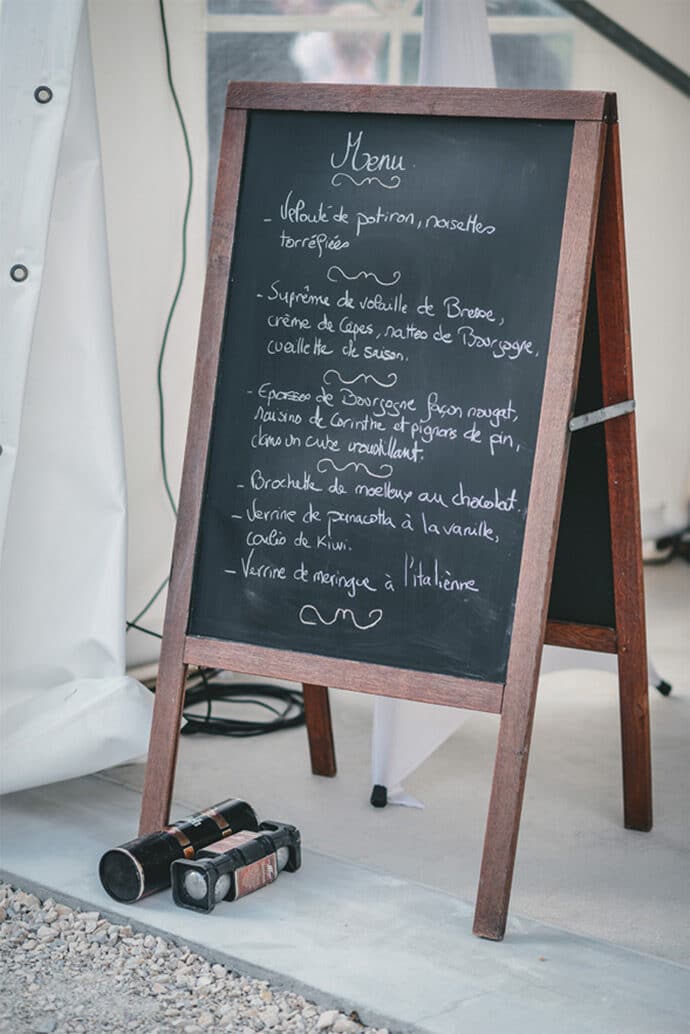 Menu
- Velouté de potiron, noisettes
torréfiées
- Suprême de volaille de Bresse,
crème de Cèpes, nattes de Bourgogne,
cueillette de saison.
- Epoisses de Bourgogne façon nougat,
raisins de Corinthe et pignons de pin,
dans un cube croustillant.
- Brochette de moelleux au chocolat.
- Verrine de panacotta à la vanille,
coulis de Kiwi.
- Verrine de meringue à l'italiènne